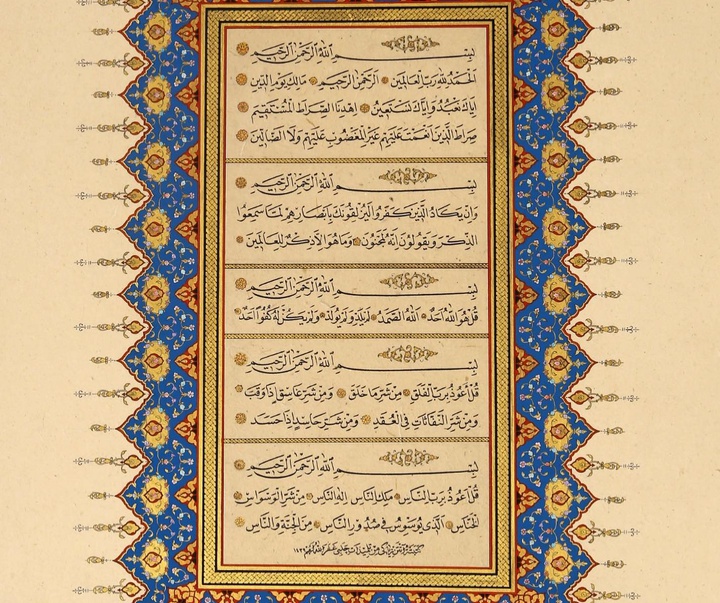 بِسْمِ اللهِ الرَّحْمٰنِ الرَّحِيمِ
اَلْحَمْدُ لِلّٰهِ رَبِّ الْعَالَمِينَ الرَّحْمٰنِ الرَّحِيمِ مَالِكِ يَوْمِ الدِّينِ
اِيَّاكَ نَعْبُدُ وَاِيَّاكَ نَسْتَعِينُ اِهْدِنَا الصِّرَاطَ الْمُسْتَقِيمَ
صِرَاطَ الَّذِينَ اَنْعَمْتَ عَلَيْهِمْ غَيْرِ الْمَغْضُوبِ عَلَيْهِمْ وَلَا الضَّالِّينَ
بِسْمِ اللهِ الرَّحْمٰنِ الرَّحِيمِ
وَاِنْ يَكَادُ الَّذِينَ كَفَرُوا لَيُزْلِقُونَكَ بِاَبْصَارِهِمْ لَمَّا سَمِعُوا
الذِّكْرَ وَيَقُولُونَ اِنَّهُ لَمَجْنُونٌ وَمَا هُوَ اِلَّا ذِكْرٌ لِلْعَالَمِينَ
بِسْمِ اللهِ الرَّحْمٰنِ الرَّحِيمِ
قُلْ هُوَ اللهُ اَحَدٌ اَللهُ الصَّمَدُ لَمْ يَلِدْ وَلَمْ يُولَدْ وَلَمْ يَكُنْ لَهُ كُفُوًا اَحَدٌ
بِسْمِ اللهِ الرَّحْمٰنِ الرَّحِيمِ
قُلْ اَعُوذُ بِرَبِّ الْفَلَقِ مِنْ شَرِّ مَا خَلَقَ وَمِنْ شَرِّ غَاسِقٍ اِذَا وَقَبَ
وَمِنْ شَرِّ النَّفَّاثَاتِ فِي الْعُقَدِ وَمِنْ شَرِّ حَاسِدٍ اِذَا حَسَدَ
بِسْمِ اللهِ الرَّحْمٰنِ الرَّحِيمِ
قُلْ اَعُوذُ بِرَبِّ النَّاسِ مَلِكِ النَّاسِ اِلٰهِ النَّاسِ مِنْ شَرِّ الْوَسْوَاسِ
الْخَنَّاسِ اَلَّذِي يُوَسْوِسُ فِي صُدُورِ النَّاسِ مِنَ الْجِنَّةِ وَالنَّاسِ